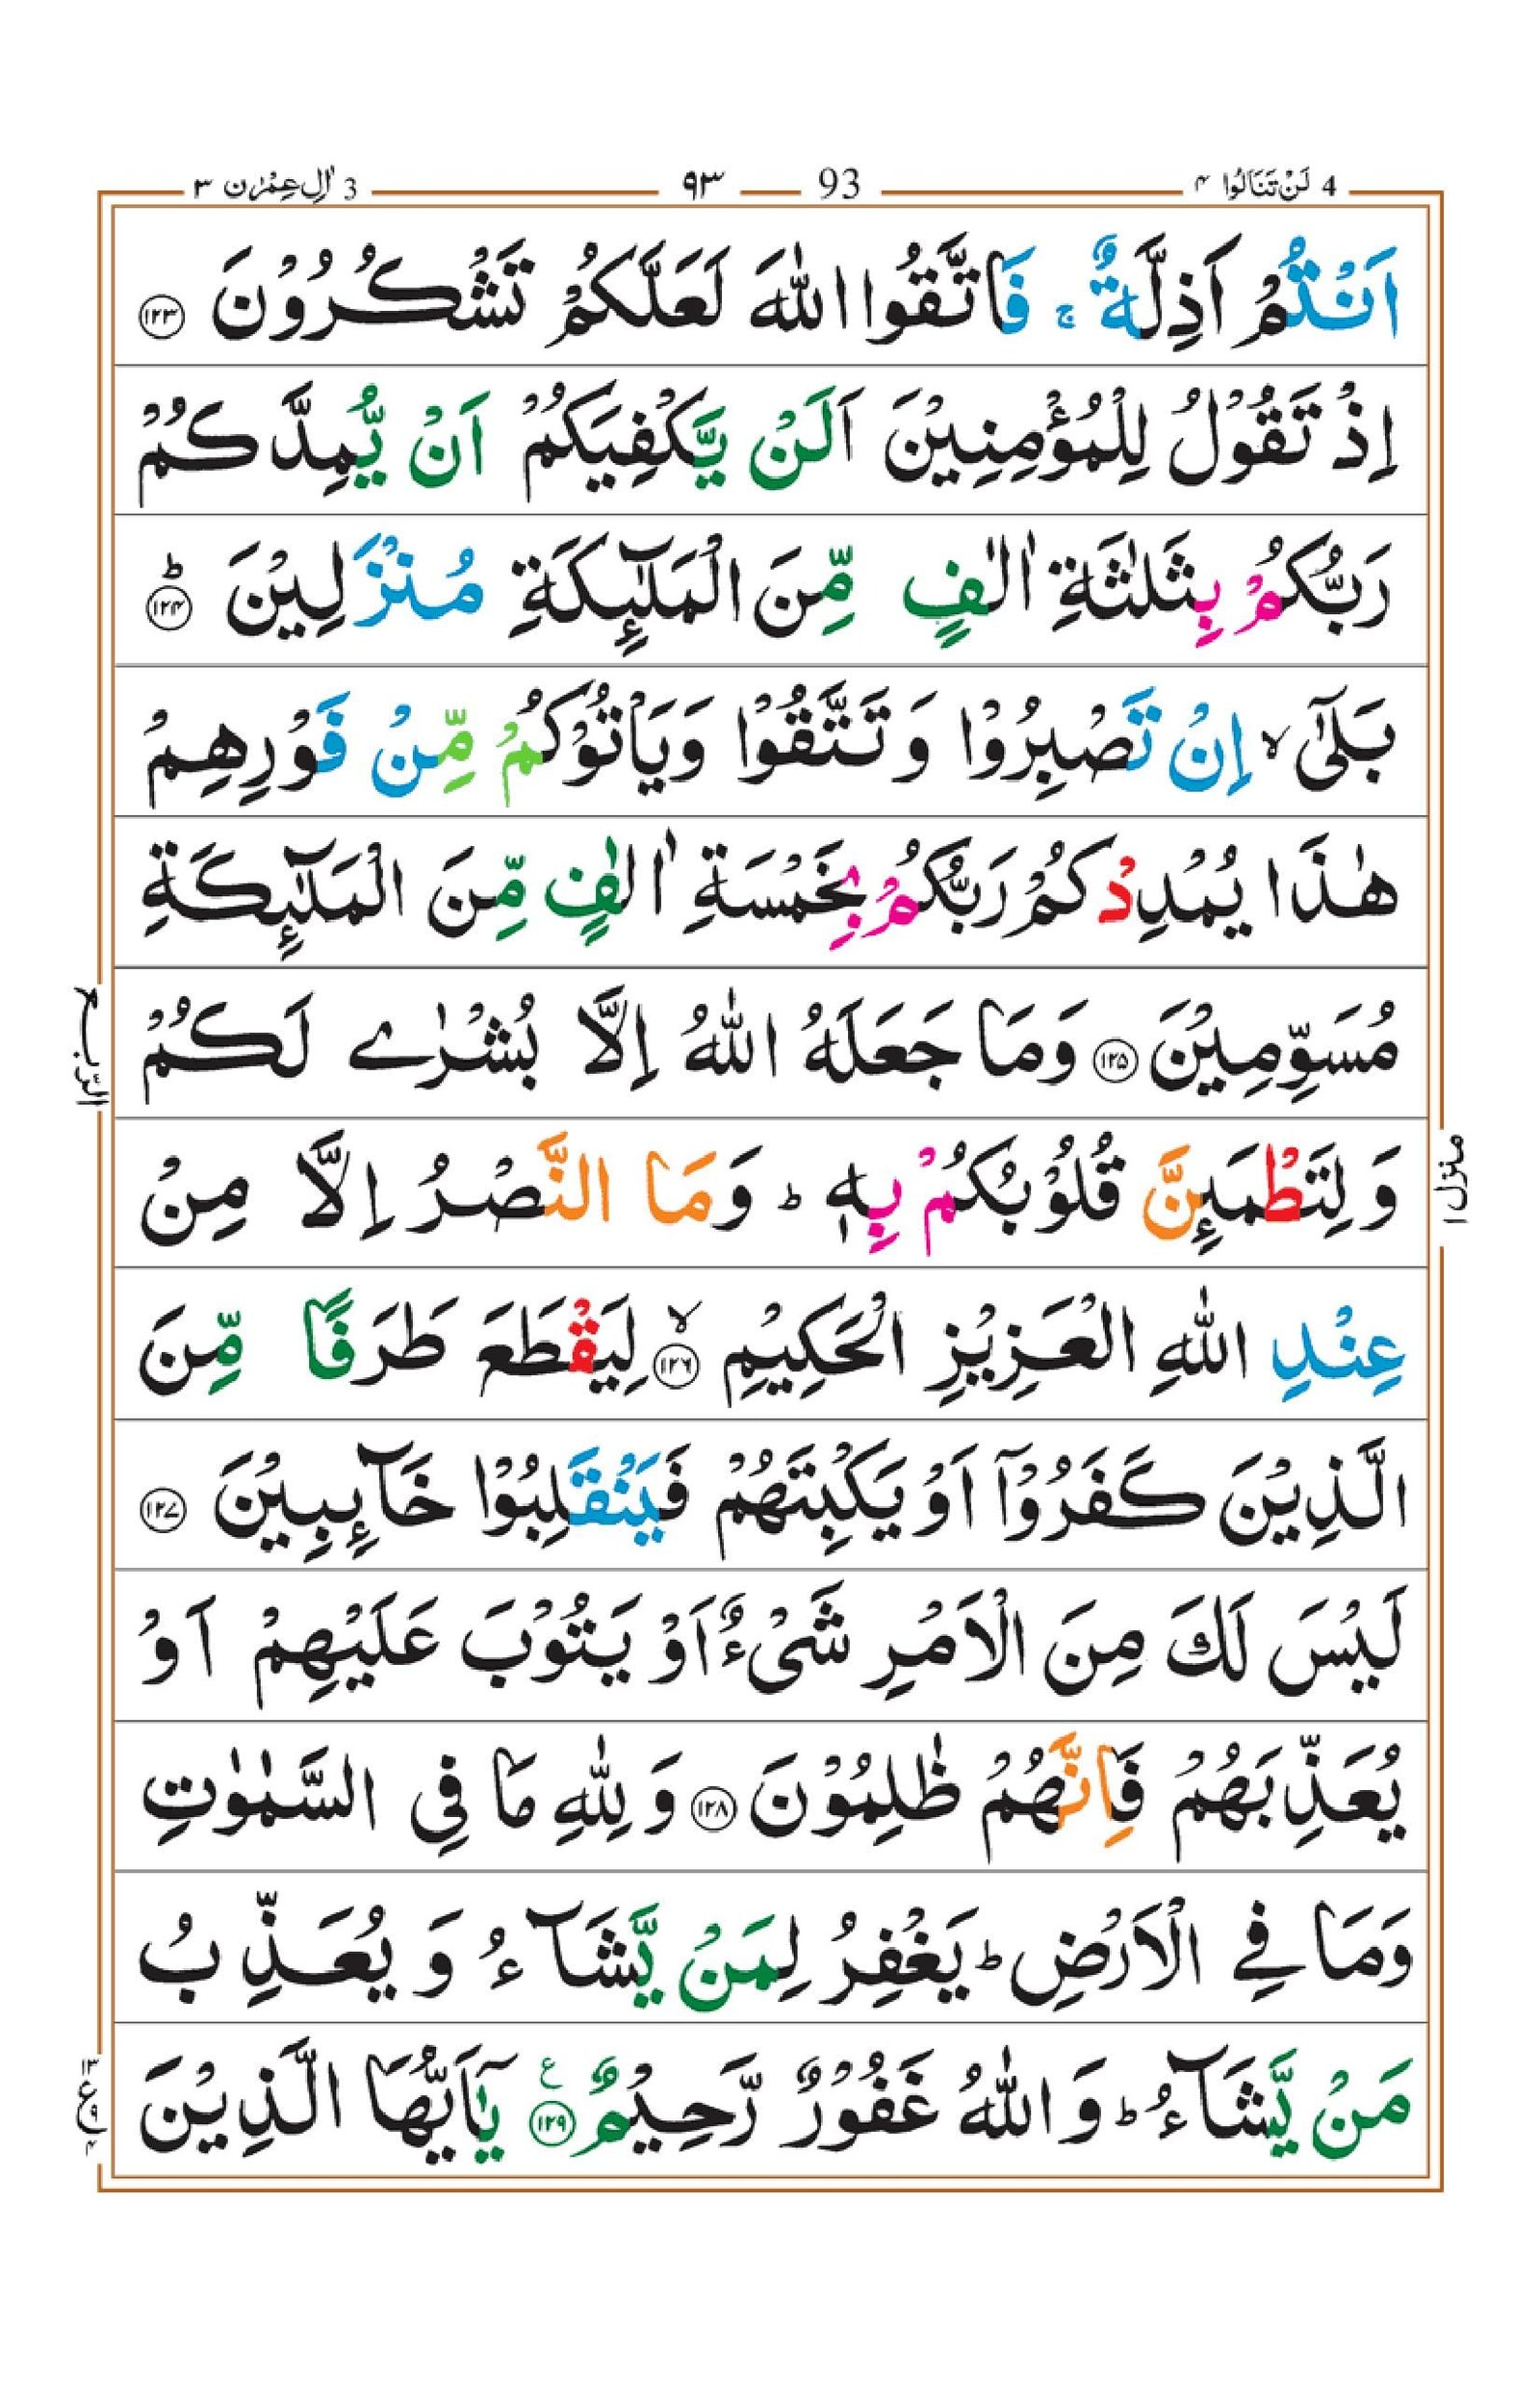 4 لَنْ تَنَالُوا ۴ 93 ۹۳ 3 اٰلِ عِمْرٰن ۳
اَنْتُمْ اَذِلَّةٌ ۚ فَاتَّقُوا اللّٰهَ لَعَلَّكُمْ تَشْكُرُوْنَ ﴿۱۲۳﴾
اِذْ تَقُوْلُ لِلْمُؤْمِنِيْنَ اَلَنْ يَّكْفِيَكُمْ اَنْ يُّمِدَّكُمْ
رَبُّكُمْ بِثَلٰثَةِ اٰلٰفٍ مِّنَ الْمَلٰٓئِكَةِ مُنْزَلِيْنَ ؕ﴿۱۲۴﴾
بَلٰٓى ۙ اِنْ تَصْبِرُوْا وَ تَتَّقُوْا وَيَاْتُوْكُمْ مِّنْ فَوْرِهِمْ
هٰذَا يُمْدِدْكُمْ رَبُّكُمْ بِخَمْسَةِ اٰلٰفٍ مِّنَ الْمَلٰٓئِكَةِ
مُسَوِّمِيْنَ ﴿۱۲۵﴾ وَمَا جَعَلَهُ اللّٰهُ اِلَّا بُشْرٰى لَكُمْ
وَ لِتَطْمَئِنَّ قُلُوْبُكُمْ بِهٖ ؕ وَمَا النَّصْرُ اِلَّا مِنْ
عِنْدِ اللّٰهِ الْعَزِيْزِ الْحَكِيْمِ ۙ﴿۱۲۶﴾ لِيَقْطَعَ طَرَفًا مِّنَ
الَّذِيْنَ كَفَرُوْٓا اَوْ يَكْبِتَهُمْ فَيَنْقَلِبُوْا خَآئِبِيْنَ ﴿۱۲۷﴾
لَيْسَ لَكَ مِنَ الْاَمْرِ شَىْءٌ اَوْ يَتُوْبَ عَلَيْهِمْ اَوْ
يُعَذِّبَهُمْ فَاِنَّهُمْ ظٰلِمُوْنَ ﴿۱۲۸﴾ وَ لِلّٰهِ مَا فِى السَّمٰوٰتِ
وَمَا فِى الْاَرْضِ ؕ يَغْفِرُ لِمَنْ يَّشَآءُ وَ يُعَذِّبُ
مَنْ يَّشَآءُ ؕ وَ اللّٰهُ غَفُوْرٌ رَّحِيْمٌ ﴿۱۲۹﴾ ع يٰٓاَيُّهَا الَّذِيْنَ
الرّبع
منزل ۱
۱۳ ع ۹ ۴